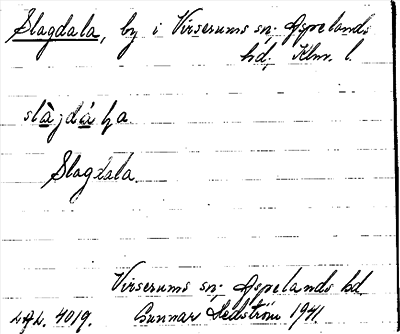 Slagdala, by i Virserums sn; Aspelands
hd, Klm. l.
slàjdáḷa
Slagdala.
Virserums sn; Aspelands hd.
LAL. 4019. Gunnar Sedström 1941